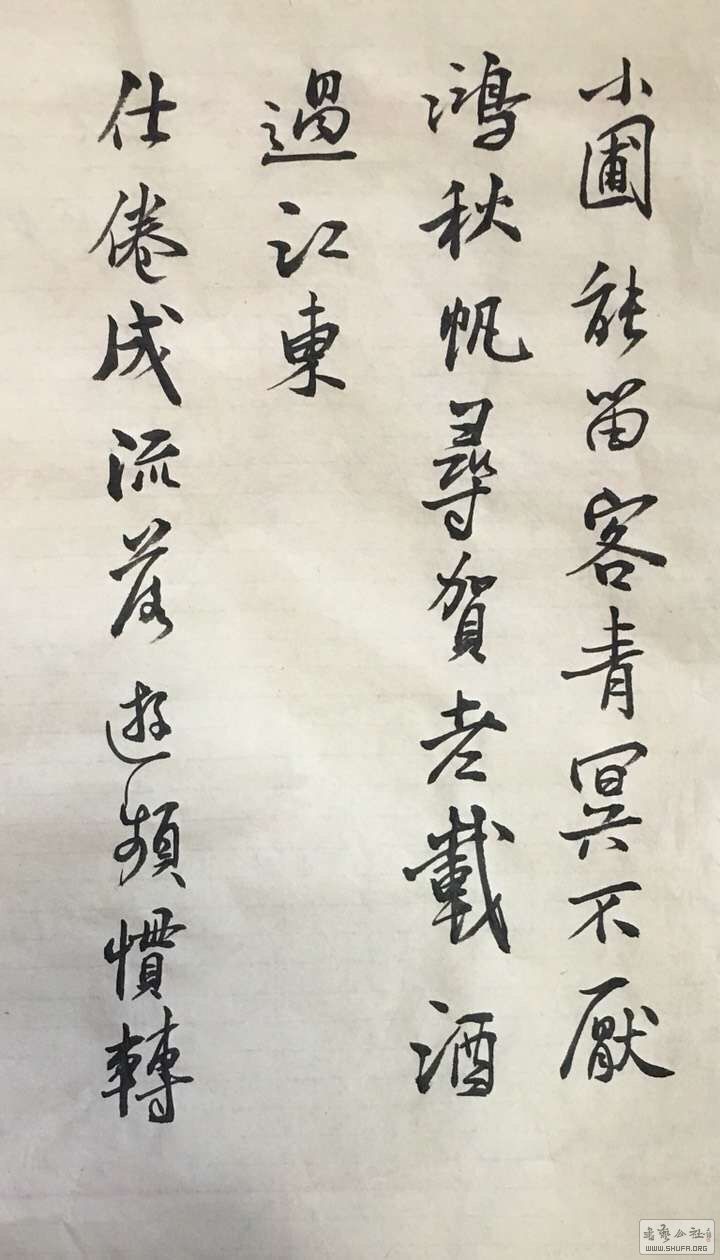 小圃能留客青冥不厭
鴻秋帆尋賀老載酒
過江東
仕倦成流落遊頻慣轉
WWW.SHUFA.ORG